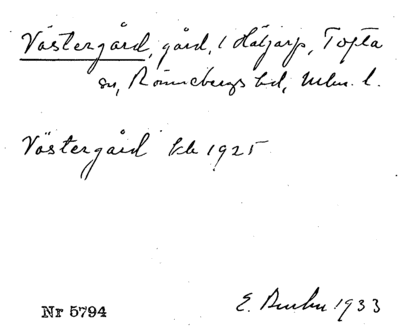 Västergård, gård, i Hätjarp, Tofta
sn, Rönnebergs hd, Mlm. l.
Västergård kk 1925
Nr 5794
E. 1933